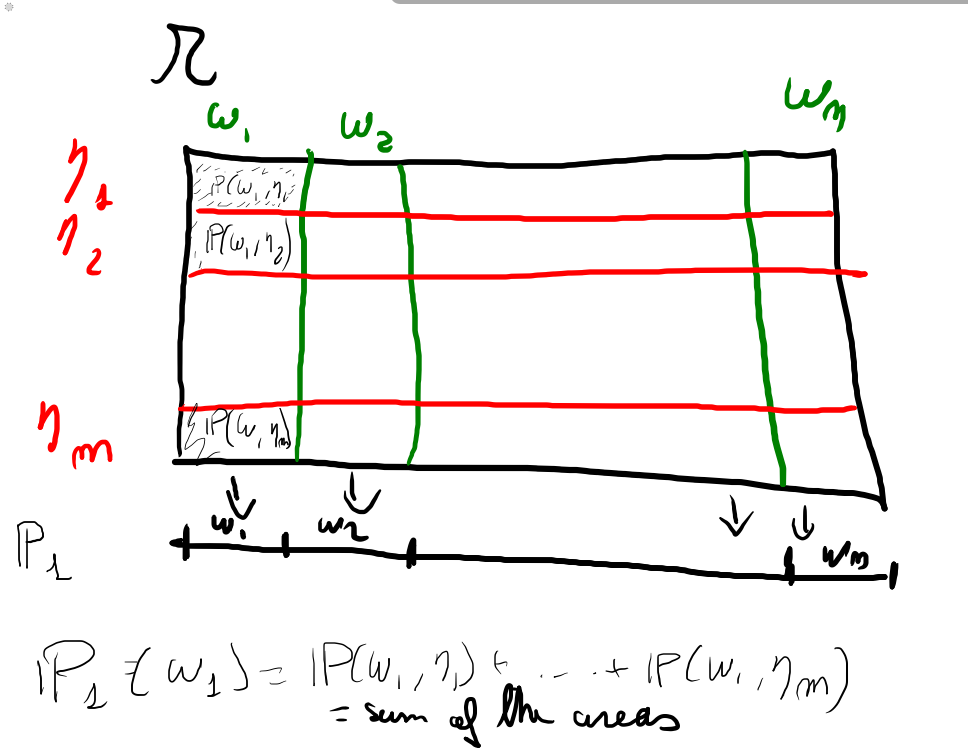 Ω
ω₁ ω₂ ωₙ
η₁ ℙ(ω₁,η₁)
η₂ ℙ(ω₁,η₂)
ηₘ ℙ(ω₁,ηₘ)
ω₁ ω₂ ωₙ
ℙ₁
ℙ₁(ω₁) = ℙ(ω₁,η₁) + ... + ℙ(ω₁,ηₘ)
= sum of the areas